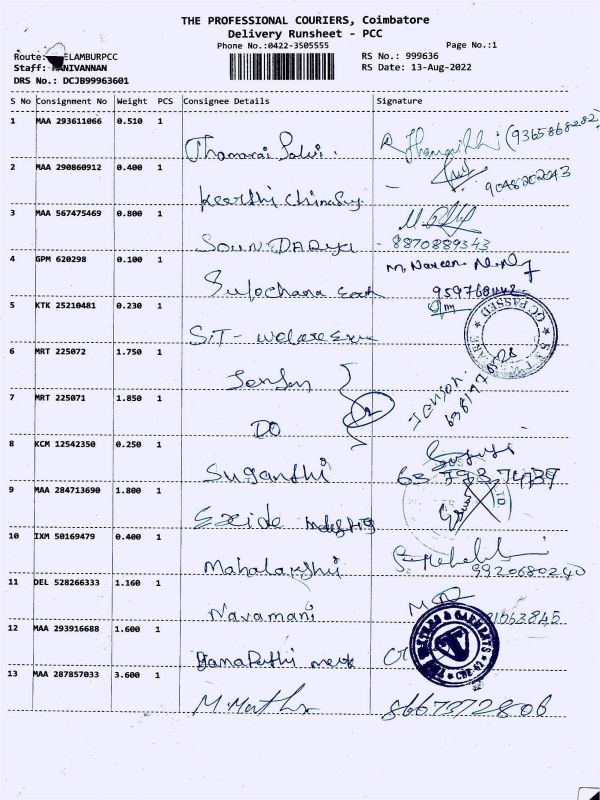 THE PROFESSIONAL COURIERS, Coimbatore
Delivery Runsheet - PCC
Phone No.:0422-3505555
Page No.:1
Route: ELAMBURPCC
RS No.: 999636
Staff: MANIVANNAN
RS Date: 13-Aug-2022
DRS No.: DCJB99963601
S No Consignment No Weight PCS Consignee Details Signature
1 MAA 293611066 0.510 1
Thamarai Selvi. (9365868282)
2 MAA 290860912 0.400 1
Keerthi 9048202043
3 MAA 567475469 0.800 1
SOUNDARYA 8870889343
4 GPM 620298 0.100 1
Sulochana M. Naveen
5 KTK 25210481 0.230 1
SIT -
6 MRT 225072 1.750 1
Jenson Jenson.
7 MRT 225071 1.850 1
DO 2
8 KCM 12542350 0.250 1
Suganthi 6379374739
9 MAA 284713690 1.800 1
Exide
10 IXM 50169479 0.400 1
Mahalakshmi 9920680240
11 DEL 528266333 1.160 1
Navamani
12 MAA 293916688 1.600 1
13 MAA 287857033 3.600 1
8667372806